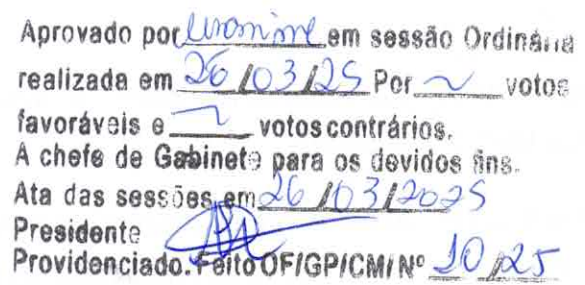 Aprovado por unanime em sessão Ordinária
realizada em 26/03/25 Por ~ votos
favoráveis e ~ votos contrários.
A chefe de Gabinete para os devidos fins.
Ata das sessões em 26/03/2025
Presidente
Providenciado. Feito OF/GP/CMI Nº 10/25